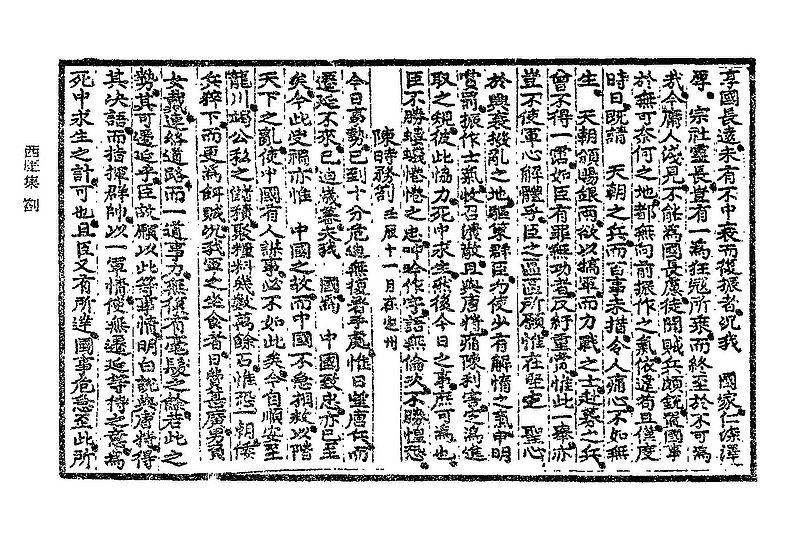 享國長遠未有不中衰而復振者況我　國家仁深澤
厚　宗社靈長豈有一爲狂寇所乘而終至於不可爲
我今庸人淺見不能爲國長慮徒聞賊兵頗銳而國事
於無可奈何之地都無向前振作之氣依違苟且僅度
時日旣請　天朝之兵而百事未措令人痛心不如無
生　天朝頒賜銀兩欲以犒軍而力戰之士赴募之兵
曾不得一霑如臣有罪無功者反紆重賞惟此一事亦
豈不使軍心解體乎臣之區區所願惟在堅定　聖心
於興衰撥亂之地驅策群臣勿使少有解惰之氣申明
賞罰振作士氣收召散亡且與唐將痛陳利害字爲進
取之規彼此恊力死中求生然後今日之事庶可爲也
臣不勝螻蟻惓惓之忠呻吟作字語無倫次不勝惶恐
陳時務劄 壬辰十一月在定州
今日事勢已到十分危迫無復着手處惟日望唐兵而
遷延不來已迫歲暮夫我　國爲　中國致忠亦已至
矣今此受禍亦惟　中國之故而中國不急拯救以階
天下之亂使中國有人謀事必不如此矣今自順安至
龍川竭公私之儲積聚粮料幾數萬餘石惟恐一朝倭
兵猝下而更爲餌賊況我軍之坐食者日費甚廣男負
女戴連絡道路而一道事力無復有毫髮之餘若此之
勢其可遷延乎臣故願以此等事情明白說與唐將得
其決語而指揮群帥以一軍情使無遷延等待之意爲
死中求生之計可也且臣又有所達國事危急至此所
西厓集 劄